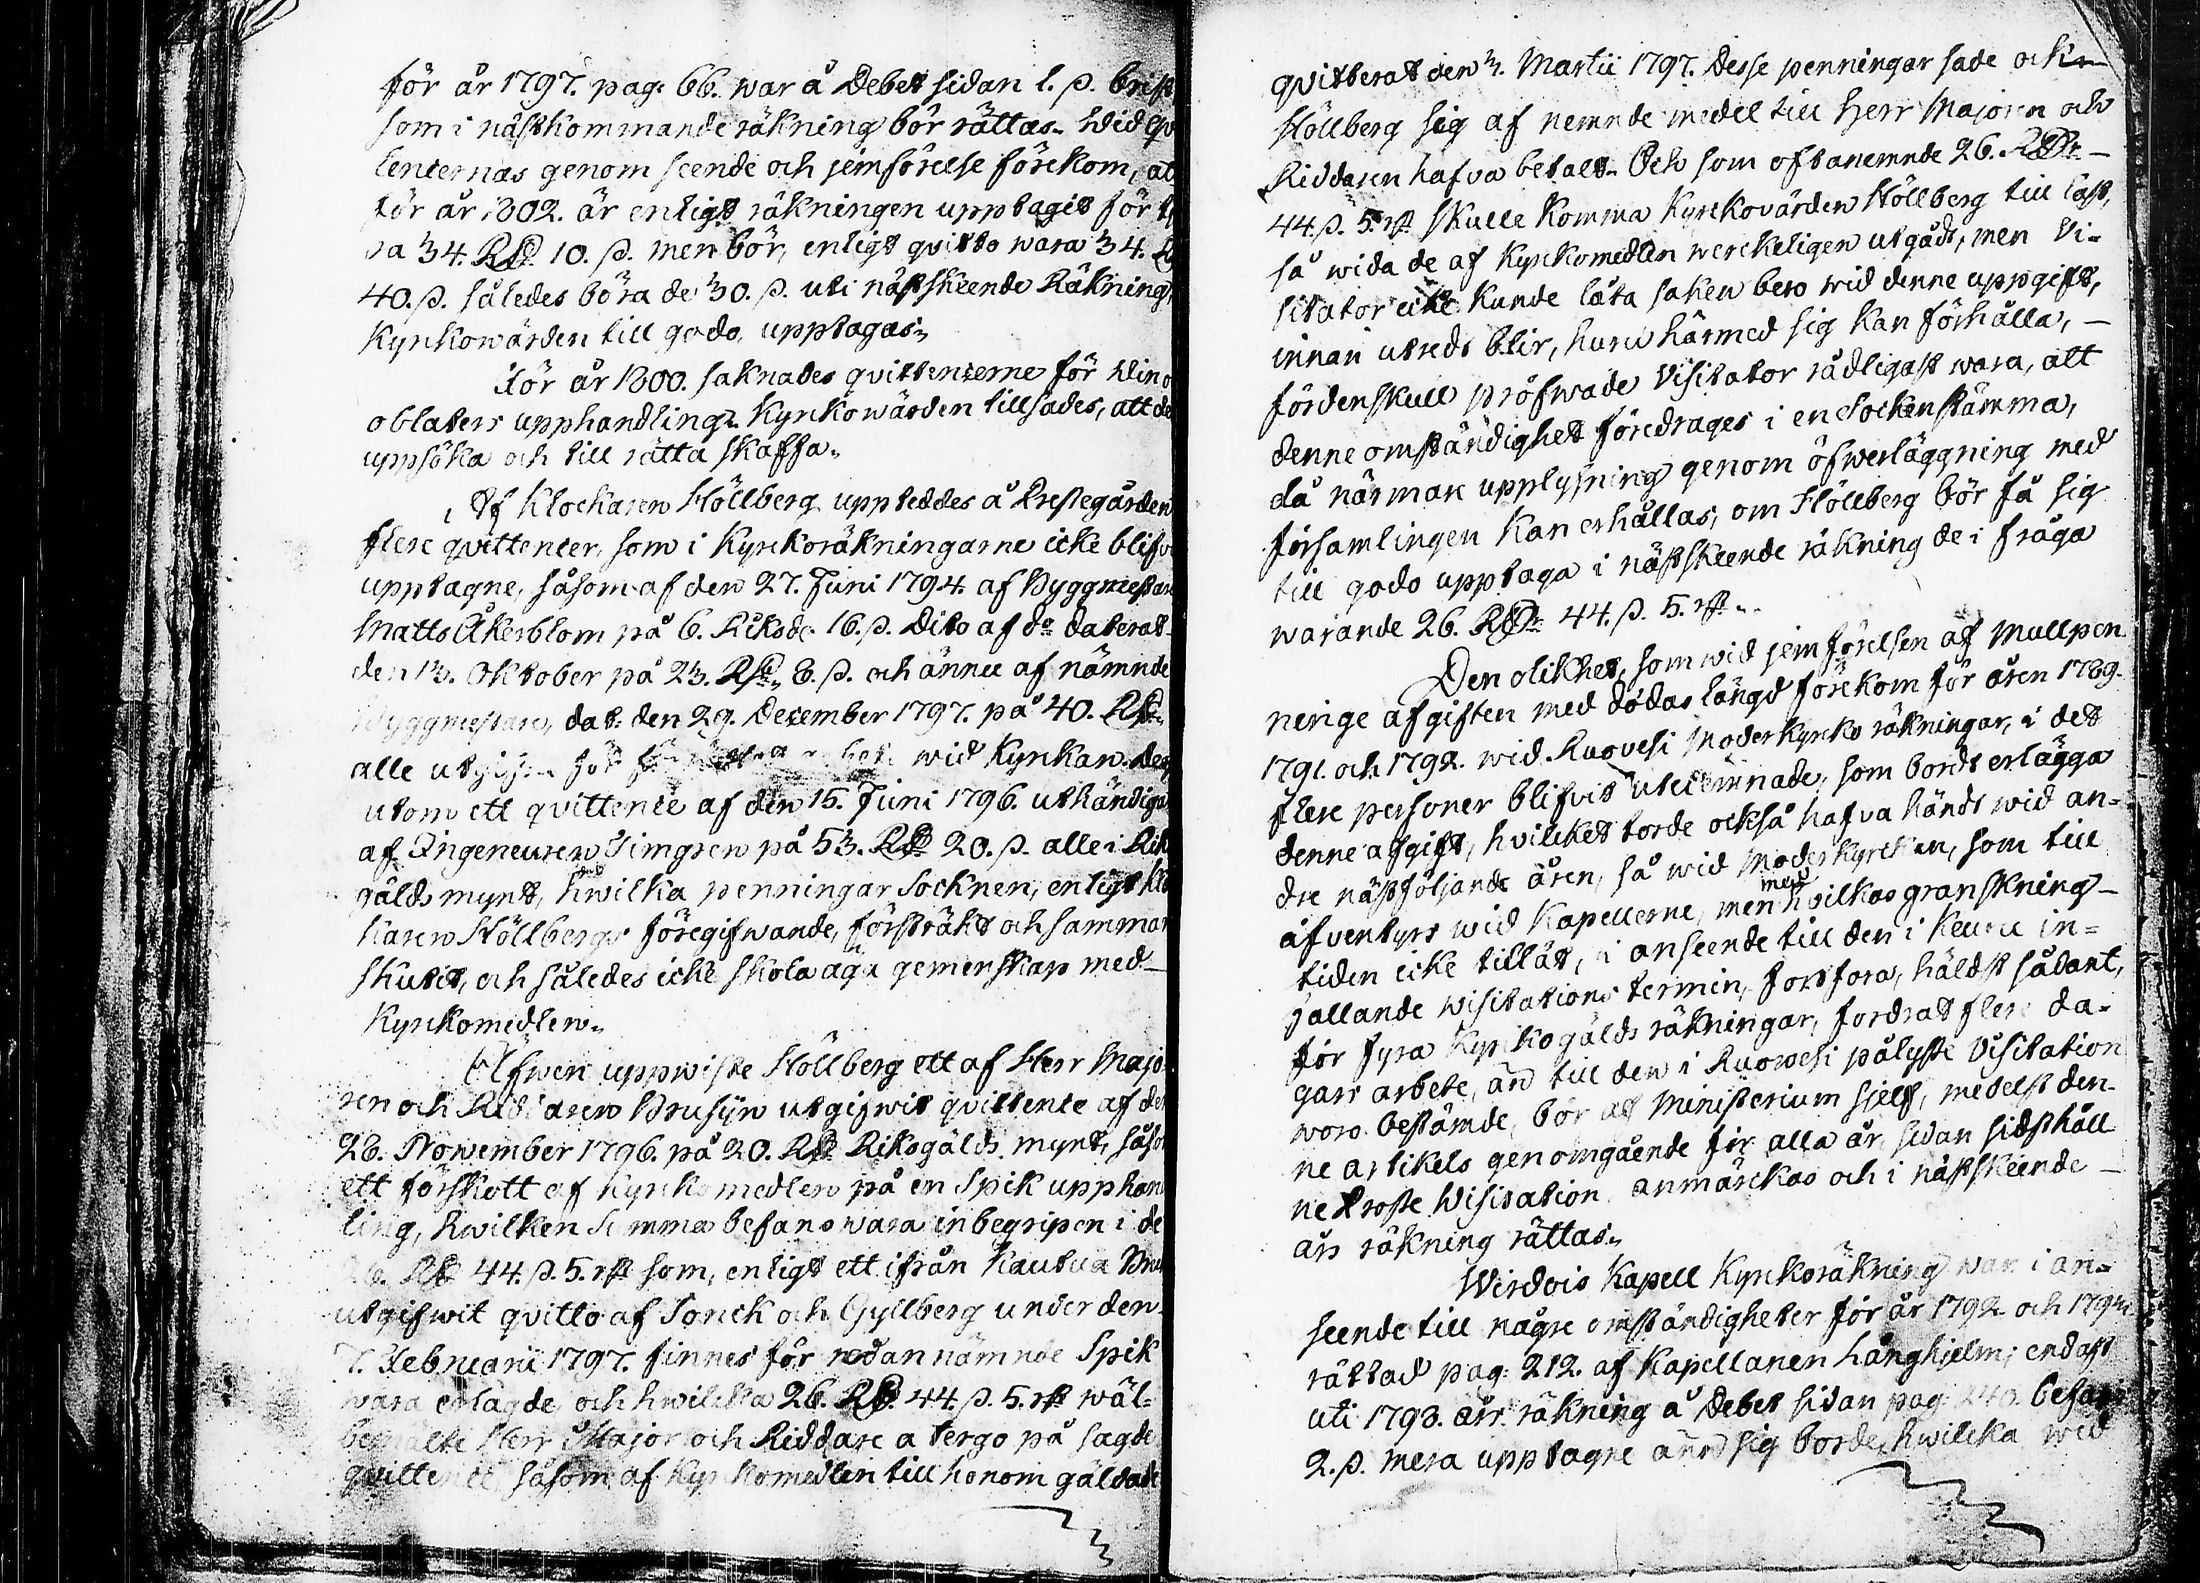 för år 1797. pag. 66. war å Debet sidan 1. ß. brist
som i nästkommande räkning bör rättas. Wid qvi
tenternas genom seende och jemförelse förekom, at
för år 1802. är enligt räkningen upptagit för
ra 34. RD. 10. ß. men bör, enligt qvitto wara 34. RD
40. ß. således böra de 30. ß. uti nästskeende Räkning
Kyrkowärden till godo upptagas.
För år 1800. saknades qvittenserne för win o
oblaters upphandling. Kyrkowärden tillsades, att de
uppsöka och till rätta skaffa.
Af Klockaren Höllberg uppteddes å Prestegården
flere qvittencer, som i Kyrckoräkningarne icke blifv
upptagne, såsom af den 27. Juni 1794. af Byggmestare
Matts Åkerblom på 6. Riksd. 16. ß. Dito af do daterat
den 13. Oktober på 23. RD. 8. ß. och ännu af nämnde
Byggmestare, dat. den 29. Desember 1797. på 40. RD.
alle utgifne för wid Kyrkan. Des
utom ett qvittence af den 15. Juni 1796. uthändiga
af Ingeneuren Timgren på 53. RD 20. ß. alle i Rik
gälds mynt, hwilka penningar Socknen, enligt Klo
karen Höllbergs föregifwande, försträkt och samman
skutit, och således icke skola äga gemenskap med
Kyrckomedlen.
Äfwen uppwiste Höllberg ett af Herr Majo
ren och Riddaren Brusiin utgifwit qvittence af den
28. November 1796. på 20. RD. Riksgälds mynt, såsom
ett förskott af Kyrckomedlen på en Spik upphand
ling, hwilken Summa befans wara inbegripen i de
26. RD 44. ß. 5. rst som, enligt ett ifrån Kautua Bruk
utgifwit qvitto af Tonck och Gyllberg under den
7. Februarii 1797. finnes för nedannämnde Spik
wara erlagde och hwilcka 26. RD. 44. ß. 5. rst wäl-
bemälte Herr Major och Riddare a tergo på sagde
qvittence, såsom af Kyrkomedlen till honom gäldade
qvitterat den 3. Martii 1797. Desse penningar sade och
Höllberg sig af nemnde medel till Herr Majoren och
Riddaren hafva betalt. Och som oftanemnde 26. RDr
44. ß. 5. rst skulle komma Kyrckovärden Höllberg till last,
så wida de af Kyrckomedlen werckeligen utgådt, men Vi-
sitator icke kunde låta saken bero wid denne uppgift,
innan utredt blir, huru härmed sig kan förhålla,
fördenskull pröfwade Visitator rådligast wara, att
denne omständighet föredrages i en Sockenstämma,
då närmare upplysning genom öfwerläggning med
församlingen kan erhållas, om Höllberg bör få sig
till godo upptaga i nästskeende räkning de i fråga
warande 26. RDr 44. ß. 5. rst.
Den olikhet, som wid jemförelsen af Mullpen
nenge afgiften med dödas längd förekom för åren 1789.
1791. och 1792. wid Ruovesi Moderkyrko räkningar, i det
flere personer blifvit utelemnade, som bordt erlägga
denne afgift, hvilcket torde också hafva händt wid an-
dre nästföljande åren, så wid Moderkyrckan, som till
äfventyrs wid Kapellerne, men med hvilkas granskning
tiden icke tillät, i anseende till den i Keuru in-
fallande visitations termin, fortfora, häldst sådant,
för fyra Kyrckogälds räkningar, fordrat flere da-
gars arbete, än till den i Ruowesi pålyste Visitation
woro bestämde, bör af Ministerium sjelf, medelst den-
ne artikels genomgående för alla år, sedan sidsthåll
ne Proste Wisitation anmärckas och i nästskeende
års räkning rättas.
Wirdois Kapell Kyrckoräkning war i an-
seende till någre omständigheter för år 1792. och 1794.
rättad pag: 212. af Kapellanen Långhjelm; endast
uti 1793. års räkning å Debet sidan pag. 240. befans
2. ß. mera upptagne än sig borde, hwilcka wid